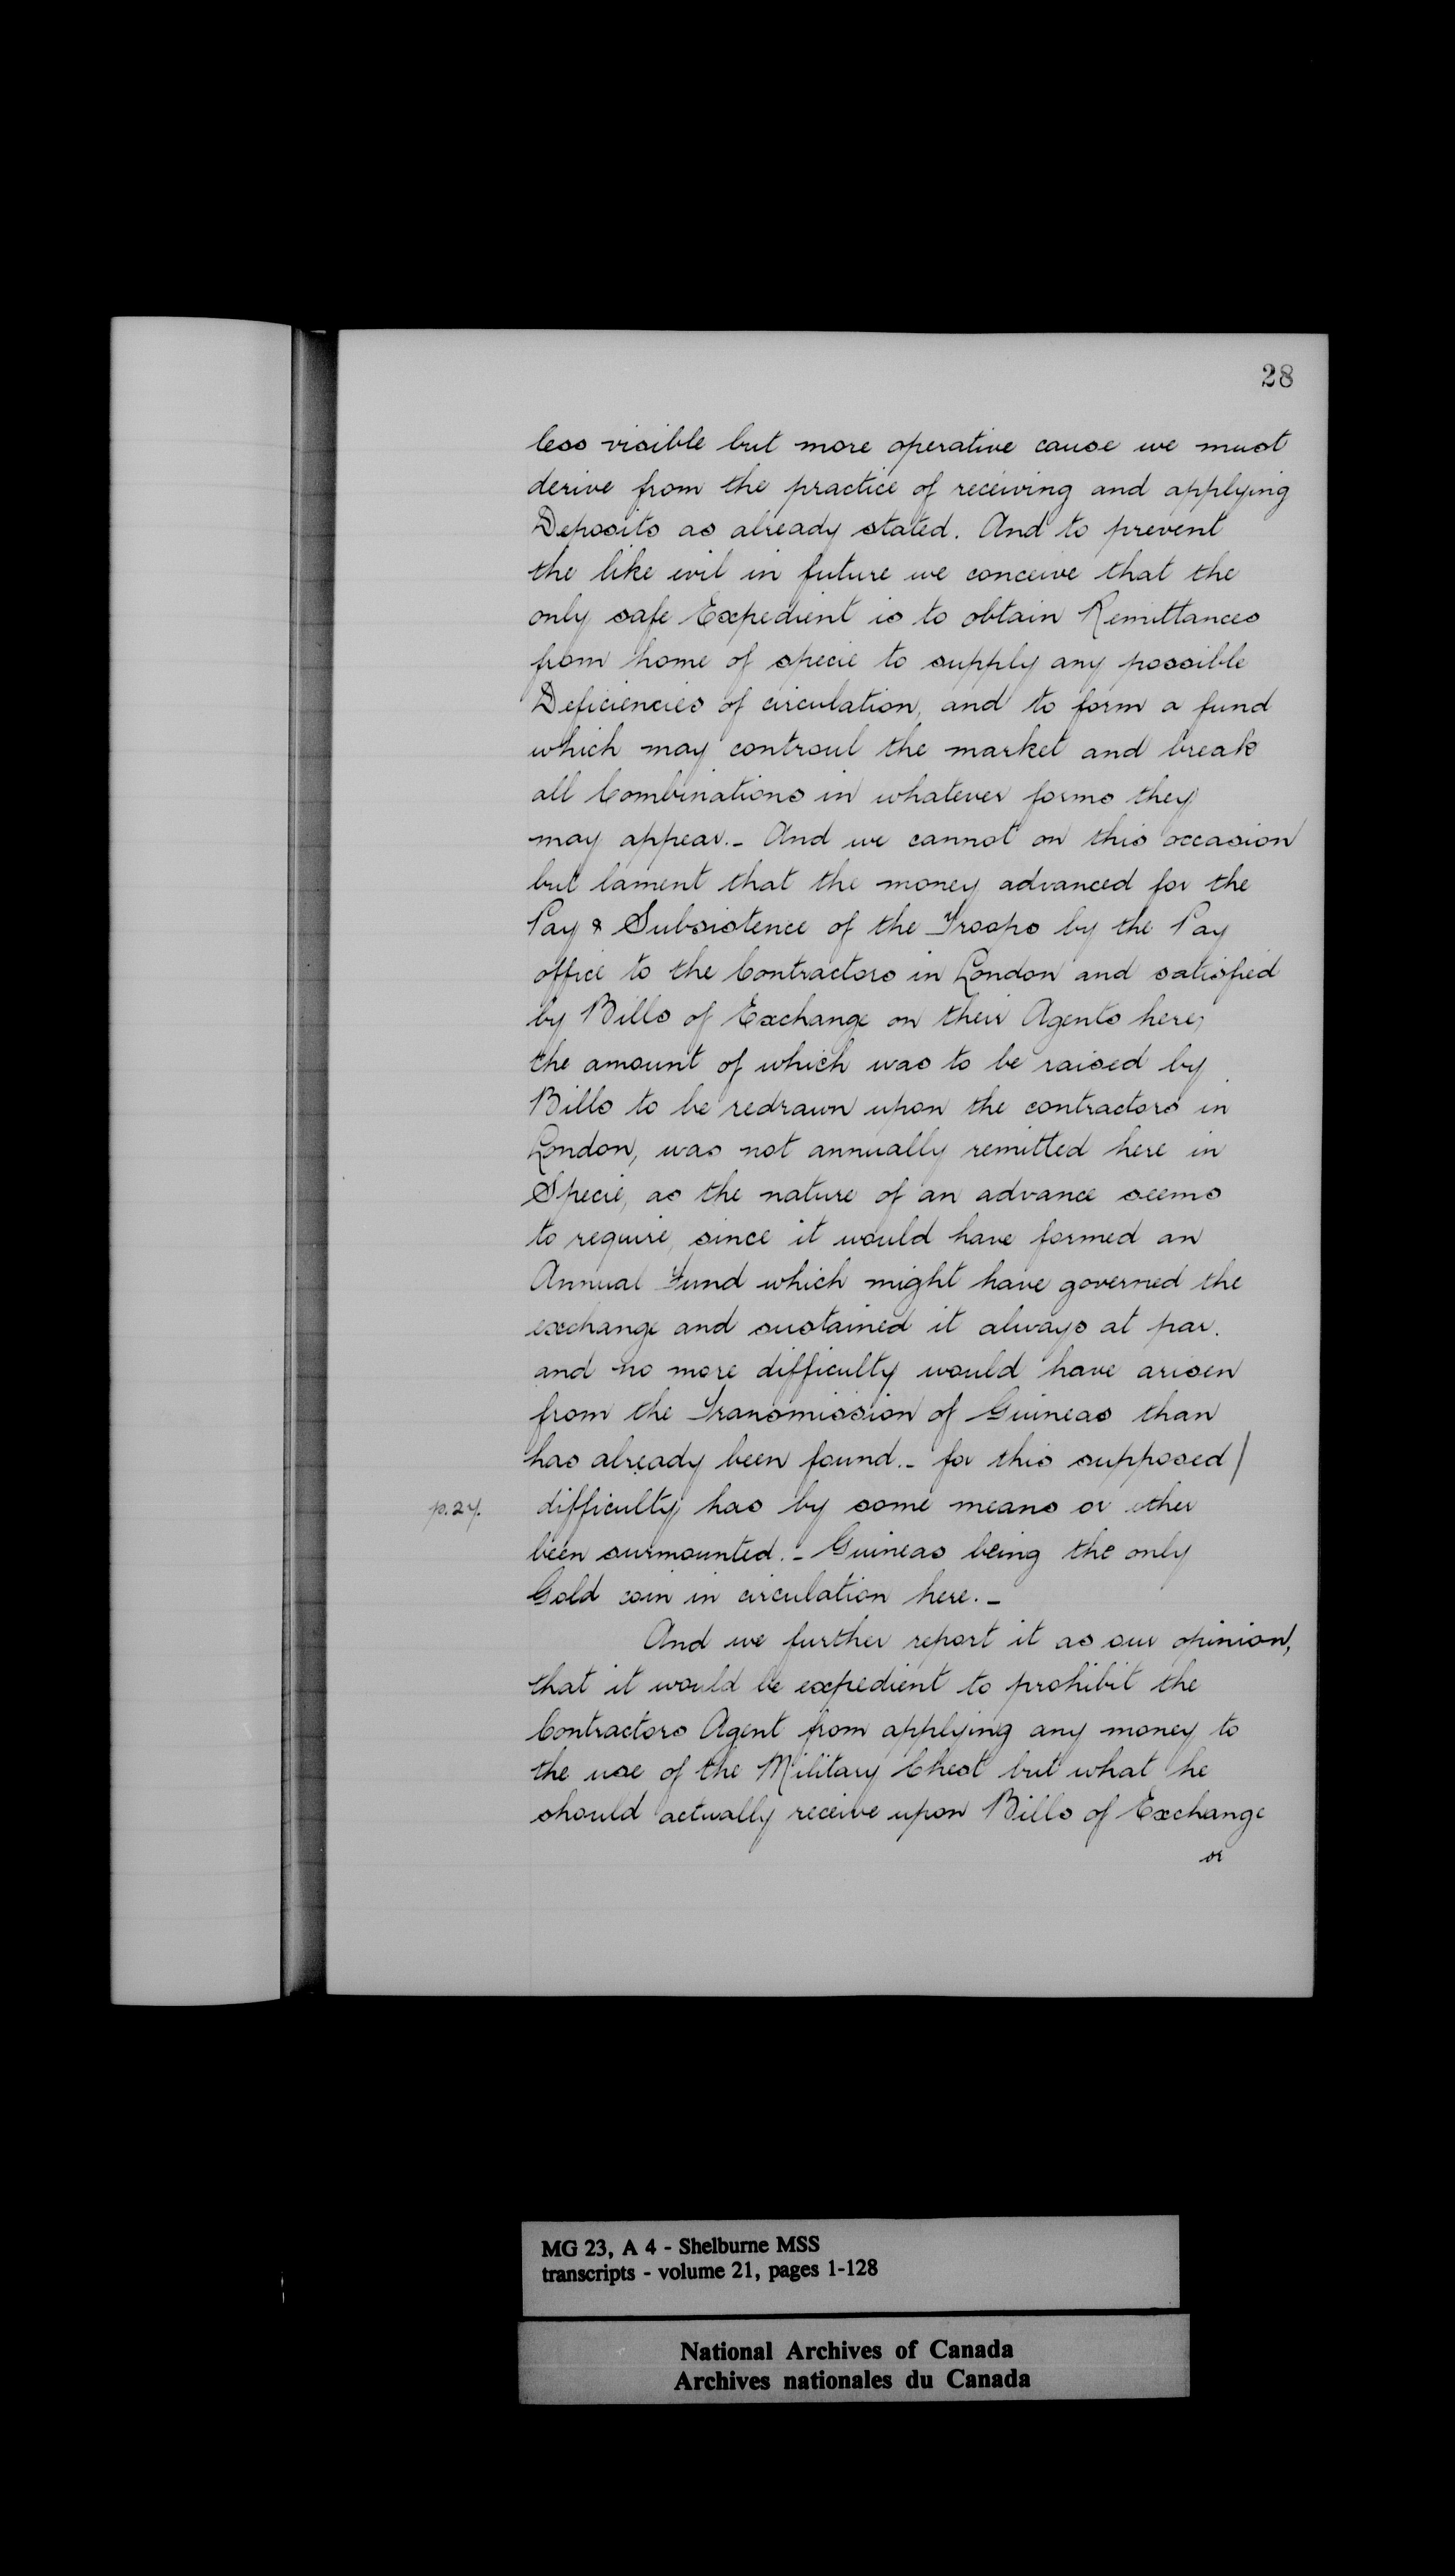 28
less visible but more operative cause we must
derive from the practice of receiving and applying
Deposits as already stated. And to prevent
the like evil in future we conceive that the
only safe Expedient is to obtain Remittances
from home of specie to supply any possible
Deficiencies of circulation, and to form a fund
which may controul the market and break
all Combinations in whatever forms they
may appear._ And we cannot on this occasion
but lament that the money advanced for the
Pay & Subsistence of the Troops by the Pay
office to the Contractors in London and satisfied
by Bills of Exchange on their Agents here,
the amount of which was to be raised by
Bills to be redrawn upon the contractors in
London, was not annually remitted here in
Specie, as the nature of an advance seems
to require, since it would have formed an
Annual Fund which might have governed the
exchange and sustained it always at par.
and no more difficulty would have arisen
from the Transmission of Guineas than
has already been found._ for this supposed /
p.27. difficulty has by some means or other
been surmounted._ Guineas being the only
Gold coin in circulation here._
And we further report it as our opinion,
that it would be expedient to prohibit the
Contractors Agent from applying any money to
the use of the Military Chest but what he
should actually receive upon Bills of Exchange
or
MG 23, A 4 - Shelburne MSS
transcripts - volume 21, pages 1-128
National Archives of Canada
Archives nationales du Canada